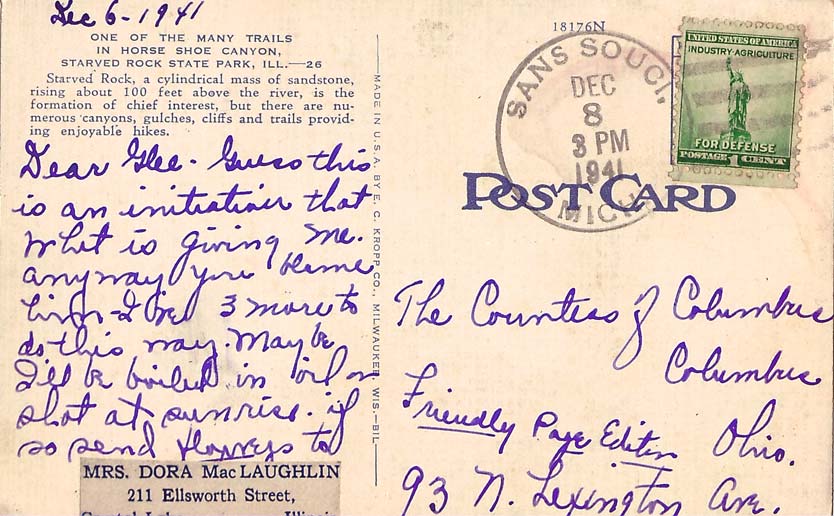 Dec 6 - 1941
ONE OF THE MANY TRAILS
IN HORSE SHOE CANYON,
STARVED ROCK STATE PARK, ILL.—26
Starved Rock, a cylindrical mass of sandstone,
rising about 100 feet above the river, is the
formation of chief interest, but there are nu-
merous canyons, gulches, cliffs and trails provid-
ing enjoyable hikes.
Dear Glee - Guess this
is an initiation that
what is giving me.
anyway you blame
him - I've 3 more to
do this way. Maybe
I'll be boiled in oil or
shot at sunrise. if
so send flowers to
MRS. DORA MacLAUGHLIN
211 Ellsworth Street,
Crystal Lake Illinois
MADE IN U.S.A. BY E. C. KROPP CO., MILWAUKEE, WIS.—BIL
18176N
SANS SOUCI,
DEC
8
3 PM
1941
MICH.
UNITED STATES OF AMERICA
INDUSTRY·AGRICULTURE
FOR DEFENSE
POSTAGE 1 CENT
POST CARD
The Countess of Columbus
Columbus
Friendly Page Editer Ohio.
93 N. Lexington Ave.